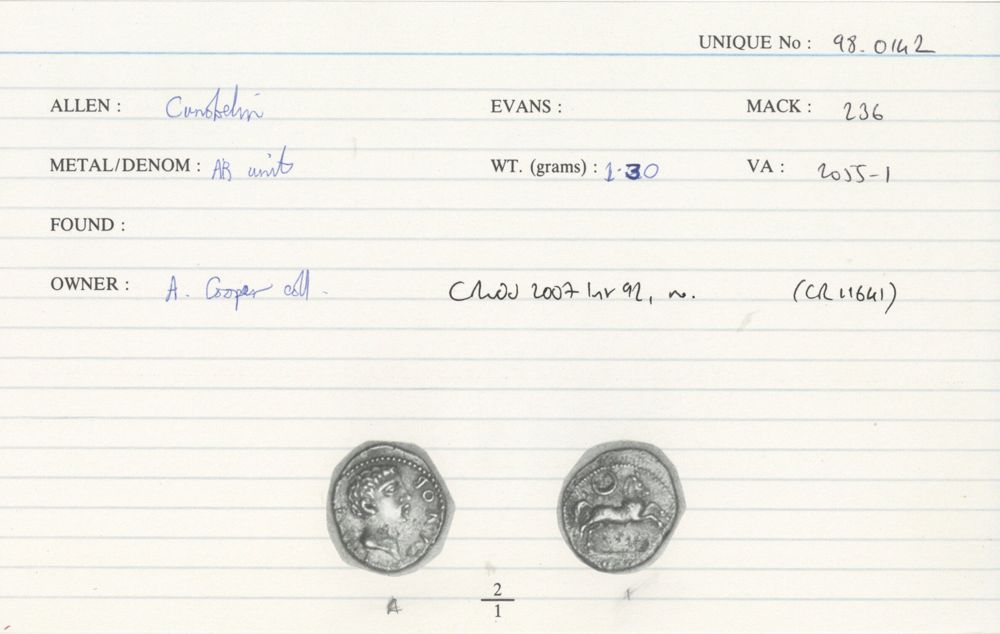 UNIQUE No : 98.0142
ALLEN : Cunobelin EVANS : MACK : 236
METAL/DENOM : AR unit WT. (grams) : 1.30 VA : 2055-1
FOUND :
OWNER : A. Cooper coll. 2007 92, (CR 11641)
A
2
1